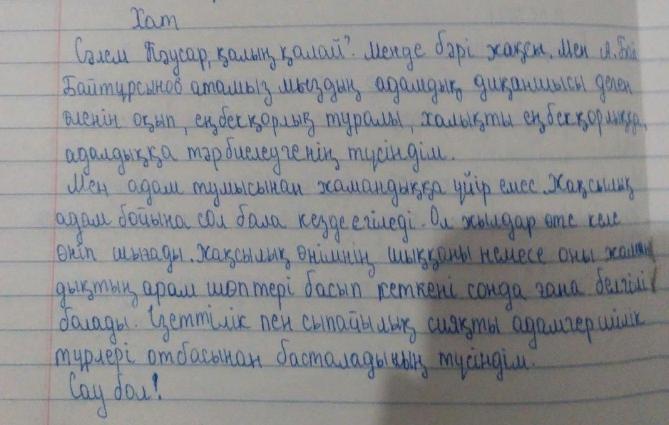 Хат
Сәлем Кәусар, қалың қалай? Менде бәрі жақсы. Мен А. Бай
Байтұрсынов атамыз мыздың адамдық диқаншысы деген
өленін оқып, еңбекқорлық туралы, халықты еңбекқорлыққа,
адалдыққа тәрбиелеугенің түсіндім.
Мен адам тумысынан жамандыққа үйір емес. Жақсылық
адам бойына сол бала кезде егіледі. Ол жылдар өте келе
өніп шығады. Жақсылық өнімнің шыққаны немесе оны жаман
дықтың арам шөптері басып кеткені сонда ғана белгілі
болады. Ізеттілік пен сыпайылық сияқты адамгершілік
түрлері отбасынан басталадының түсіндім.
Сау бол!